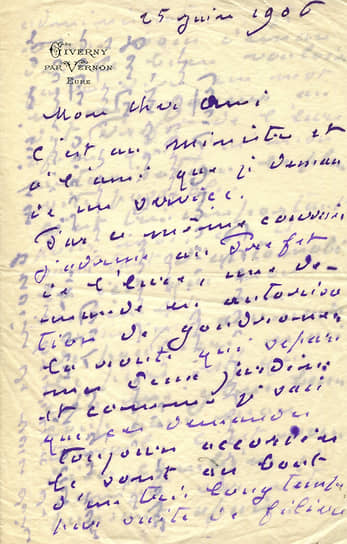 25 juin 1906
GIVERNY
PAR VERNON
EURE
Mon cher ami
c'est au ministre et
à l'ami que je deman
de un service.
Par ce même courrier
j'adresse au Préfet
de l'Eure, une de-
mande en autorisa
tion de goudronner
la route qui sépare
mes deux jardins
et comme je sais
que ces demandes
toujours accordées
le sont au bout
d'un très long temps
par suite de